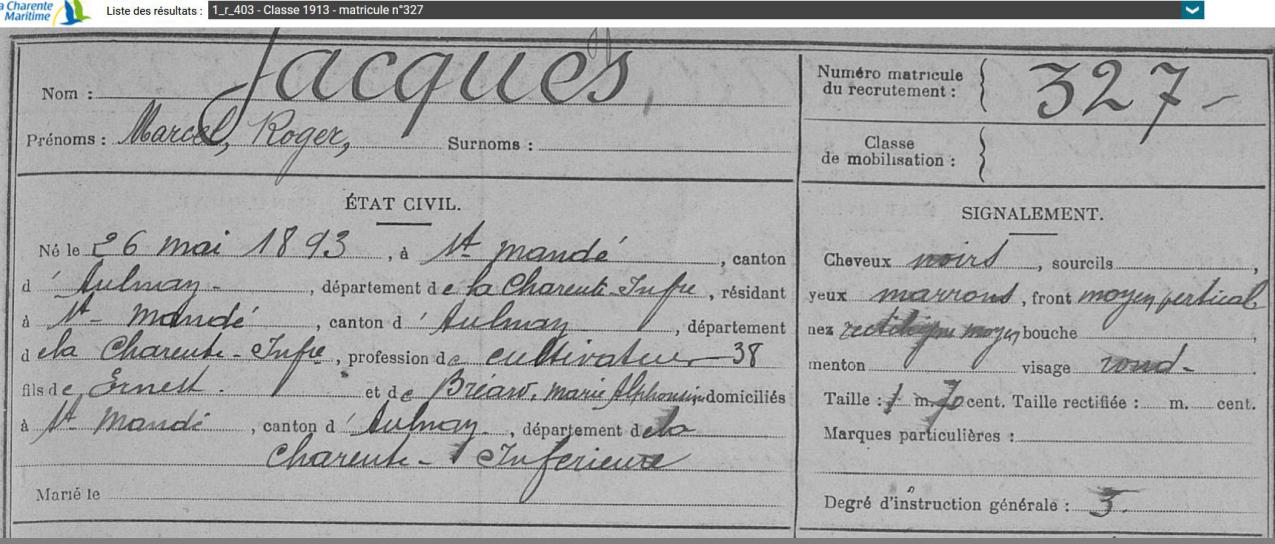 la Charente
Maritime
Liste des résultats : 1_r_403 - Classe 1913 - matricule n°327
Nom : Jacques,
Prénoms : Marcel, Roger, Surnoms :
Numéro matricule
du recrutement : 327 -
Classe
de mobilisation :
ÉTAT CIVIL.
Né le 26 mai 1893, à St mandé, canton
d'Aulnay -, département de la Charente-Infre, résidant
à St-Mandé, canton d'Aulnay, département
de la Charente-Infre, profession de cultivateur 38
fils de Ernest. et de Bréard, marie Alphonsine domiciliés
à St Mandé, canton d'Aulnay, département de la
Charente-Inférieure
Marié le
SIGNALEMENT.
Cheveux noirs, sourcils,
yeux marrons, front moyen, vertical
nez rectiligne moyen bouche,
menton visage rond -
Taille : 1 m. 70 cent. Taille rectifiée : m. cent.
Marques particulières :
Degré d'instruction générale : 3.